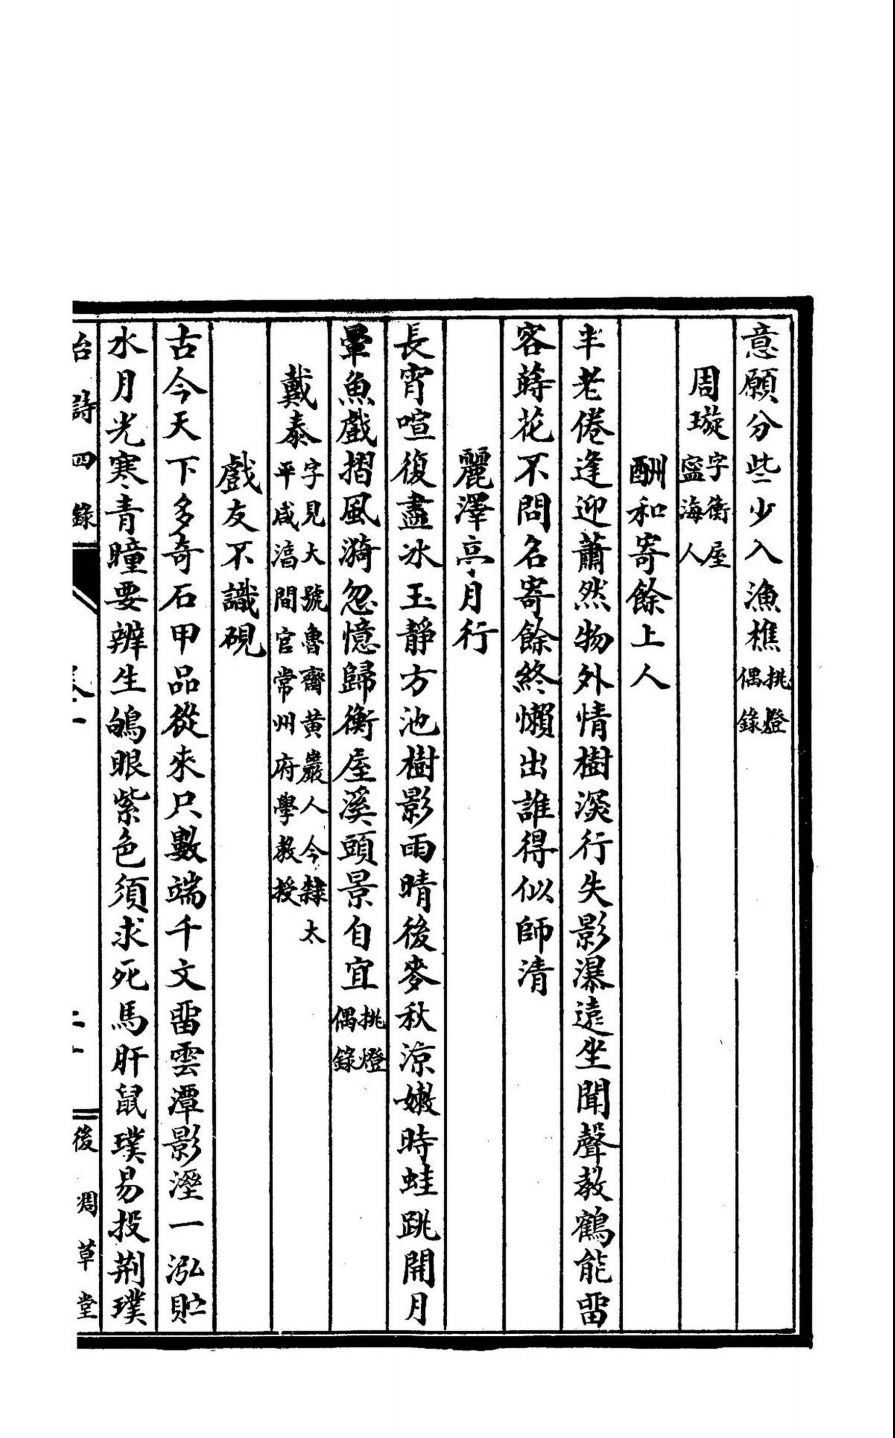 意願分些少入漁樵挑燈
偶錄
周璇字衡屋
寍海人
酬和寄餘上人
半老倦逢迎蕭然物外情樹深行失影瀑遠坐聞聲教鶴能畱
客蒔花不問名寄餘終懶出誰得似師清
麗澤亭月行
長宵喧復盡冰玉靜方池樹影雨晴後麥秋涼嫩時蛙跳開月
暈魚戲摺風漪忽憶歸衡屋溪頭景自宜挑燈
偶錄
戴泰字見大號魯齋黄巖人今隸太
平咸湻間官常州府學教授
戲友不識硯
古今天下多奇石甲品從來只數端千文畱雲潭影溼一泓貯
水月光寒青瞳要辨生鴝眼紫色須求死馬肝鼠璞易投荆璞
台詩四錄
後凋草堂